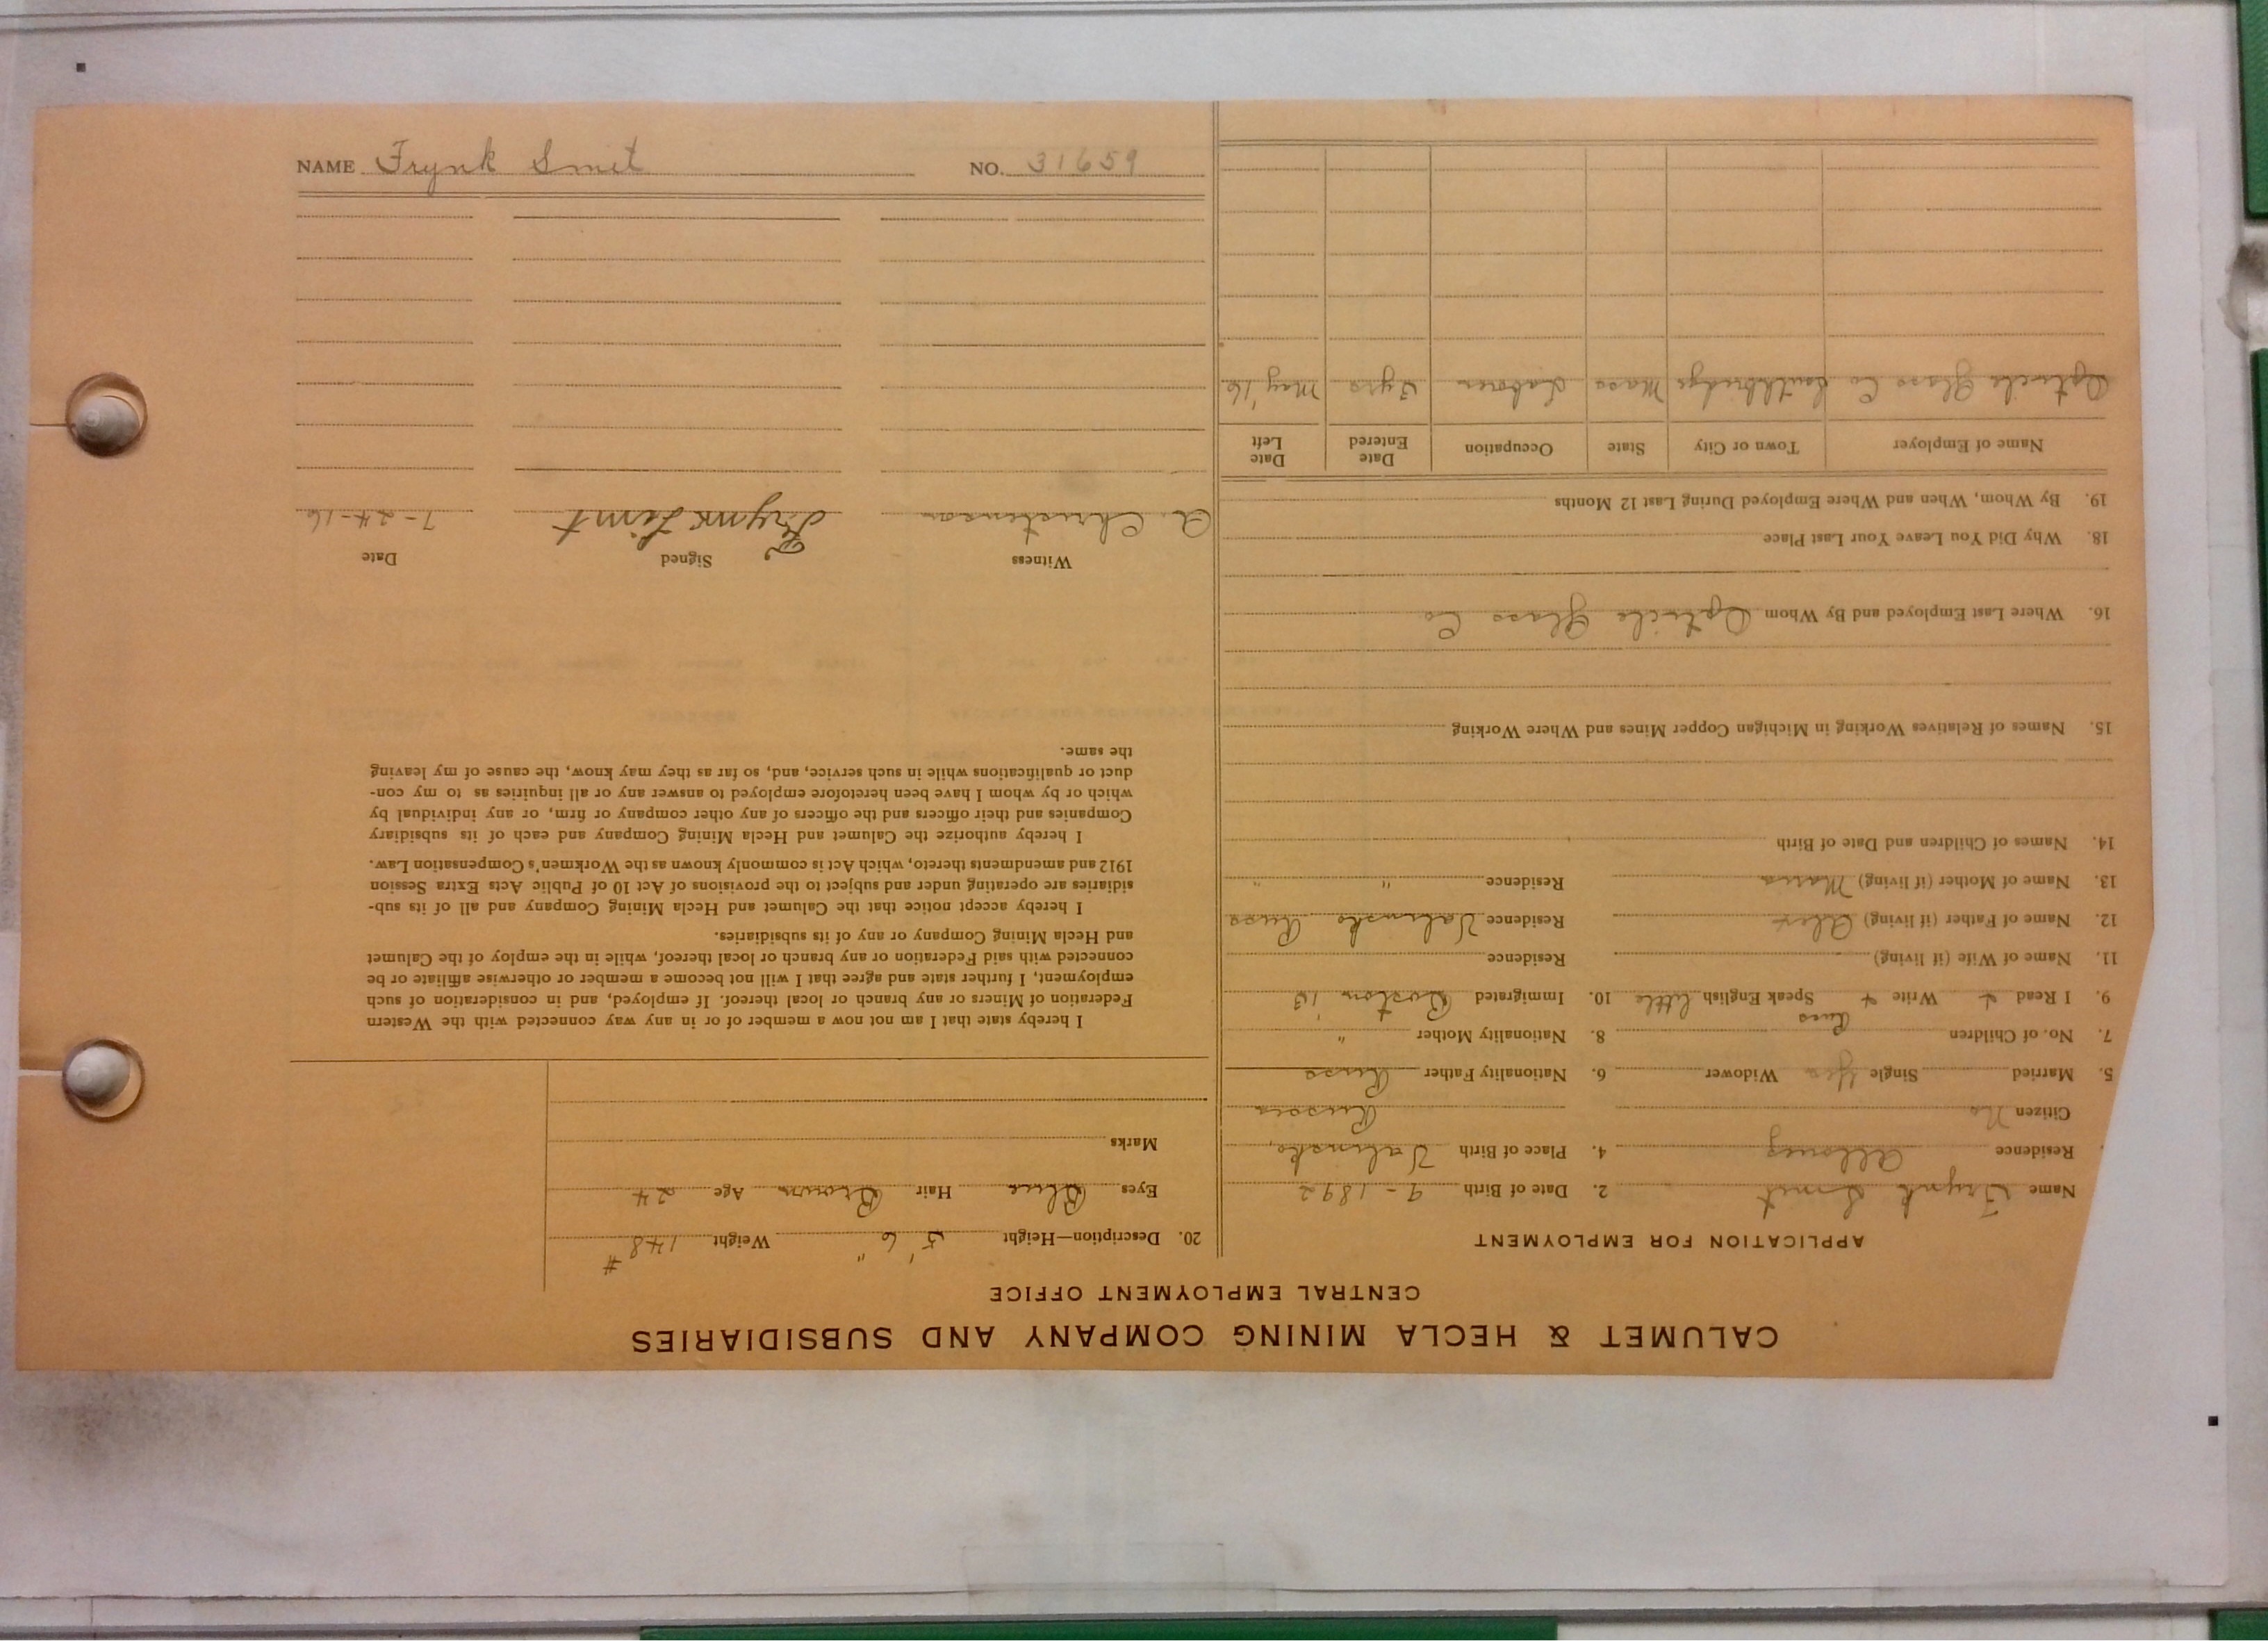 CALUMET & HECLA MINING COMPANY AND SUBSIDIARIES
CENTRAL EMPLOYMENT OFFICE
APPLICATION FOR EMPLOYMENT
Name Frynk Smet 2. Date of Birth 9-1892
Residence Allouez 4. Place of Birth
Citizen No Russia
5. Married Single Yes Widower 6. Nationality Father Russ
7. No. of Children 8. Nationality Mother "
Russ
9. I Read + Write + Speak English little 10. Immigrated Boston '13
11. Name of Wife (if living) Residence
12. Name of Father (if living) Alex Residence Russ
13. Name of Mother (if living) Maria Residence " "
14. Names of Children and Date of Birth
15. Names of Relatives Working in Michigan Copper Mines and Where Working
16. Where Last Employed and By Whom Optricle Glass Co
18. Why Did You Leave Your Last Place
19. By Whom, When and Where Employed During Last 12 Months
Name of Employer Town or City State Occupation Date Entered Date Left
Optricle Glass Co Southbridge Mass Laborer 3 yrs May '16
20. Description—Height 5' 6" Weight 148#
Eyes Blue Hair Brown Age 24
Marks
I hereby state that I am not now a member of or in any way connected with the Western
Federation of Miners or any branch or local thereof. If employed, and in consideration of such
employment, I further state and agree that I will not become a member or otherwise affiliate or be
connected with said Federation or any branch or local thereof, while in the employ of the Calumet
and Hecla Mining Company or any of its subsidiaries.
I hereby accept notice that the Calumet and Hecla Mining Company and all of its sub-
sidiaries are operating under and subject to the provisions of Act 10 of Public Acts Extra Session
1912 and amendments thereto, which Act is commonly known as the Workmen's Compensation Law.
I hereby authorize the Calumet and Hecla Mining Company and each of its subsidiary
Companies and their officers and the officers of any other company or firm, or any individual by
which or by whom I have been heretofore employed to answer any or all inquiries as to my con-
duct or qualifications while in such service, and, so far as they may know, the cause of my leaving
the same.
Witness Signed Date
A. Christenson Frynk 7-24-16
NAME Frynk Smet NO. 31659